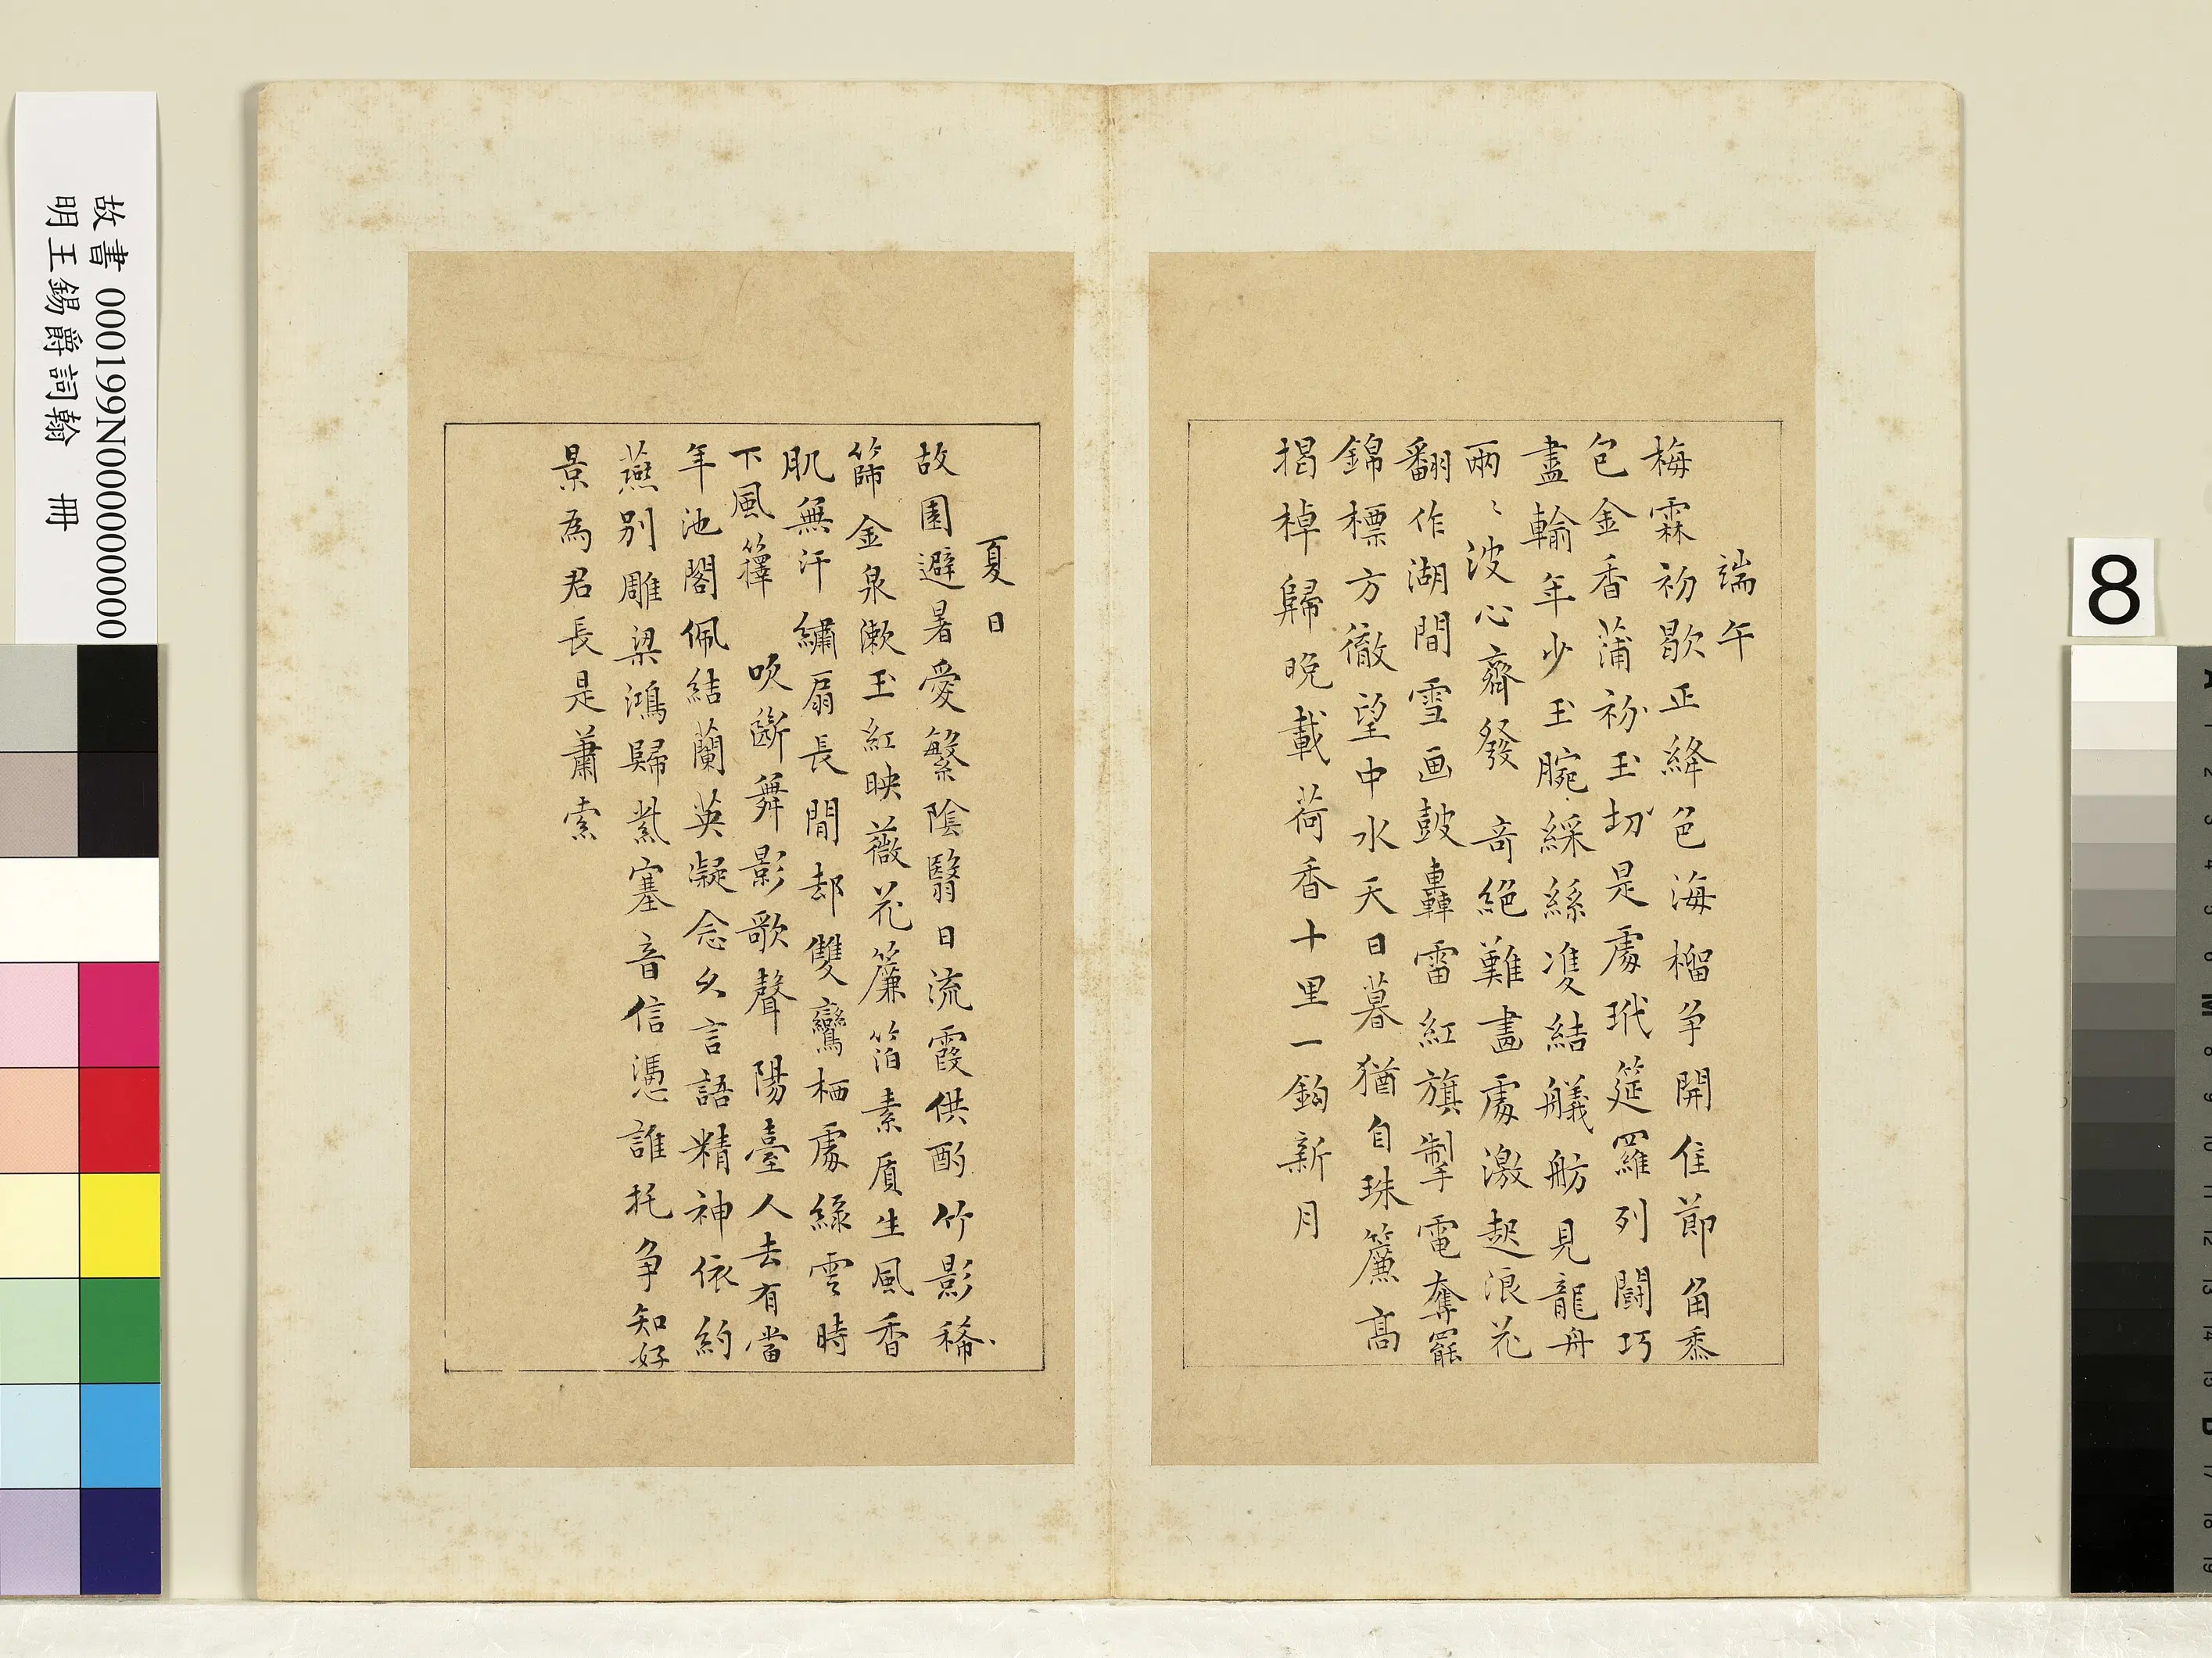 端午
梅霖初歇正絳色海榴争開佳節角黍
包金香蒲衯玉切是處玳筵羅列鬪巧
盡輸年少玉腕綵絲雙結艤舫見龍舟
兩〻波心齊發 奇絕難畫處激起浪花
翻作湖間雪画鼓轟雷紅旗掣電奪罷
錦標方徹望中水天日暮猶自珠簾高
揭棹歸晚載荷香十里一鈎新月
夏日
故園避暑愛繁陰翳日流霞供酌竹影稀
篩金泉漱玉紅映薇花簾箔素質生風香
肌無汗繡扇長閒却雙鸞栖處綠雲時
下風籜 吹斷舞影歌聲陽臺人去有當
年池閣佩結蘭英凝念久言語精神依約
燕別雕梁鴻歸紫塞音信憑誰托争知好
景為君長是蕭索
故書 000199N000000000
明王錫爵詞翰 冊
8